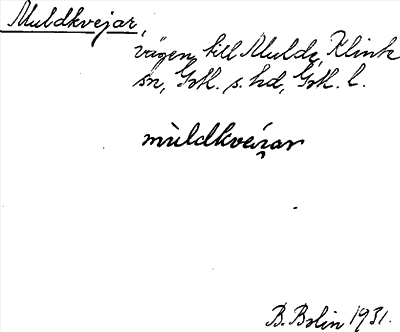 Muldkvejar,
vägen till Mulde, Klinte
sn, Gotl. s. hd, Gotl. l.
mùldkvei̯ar
B. Bolin 1931.